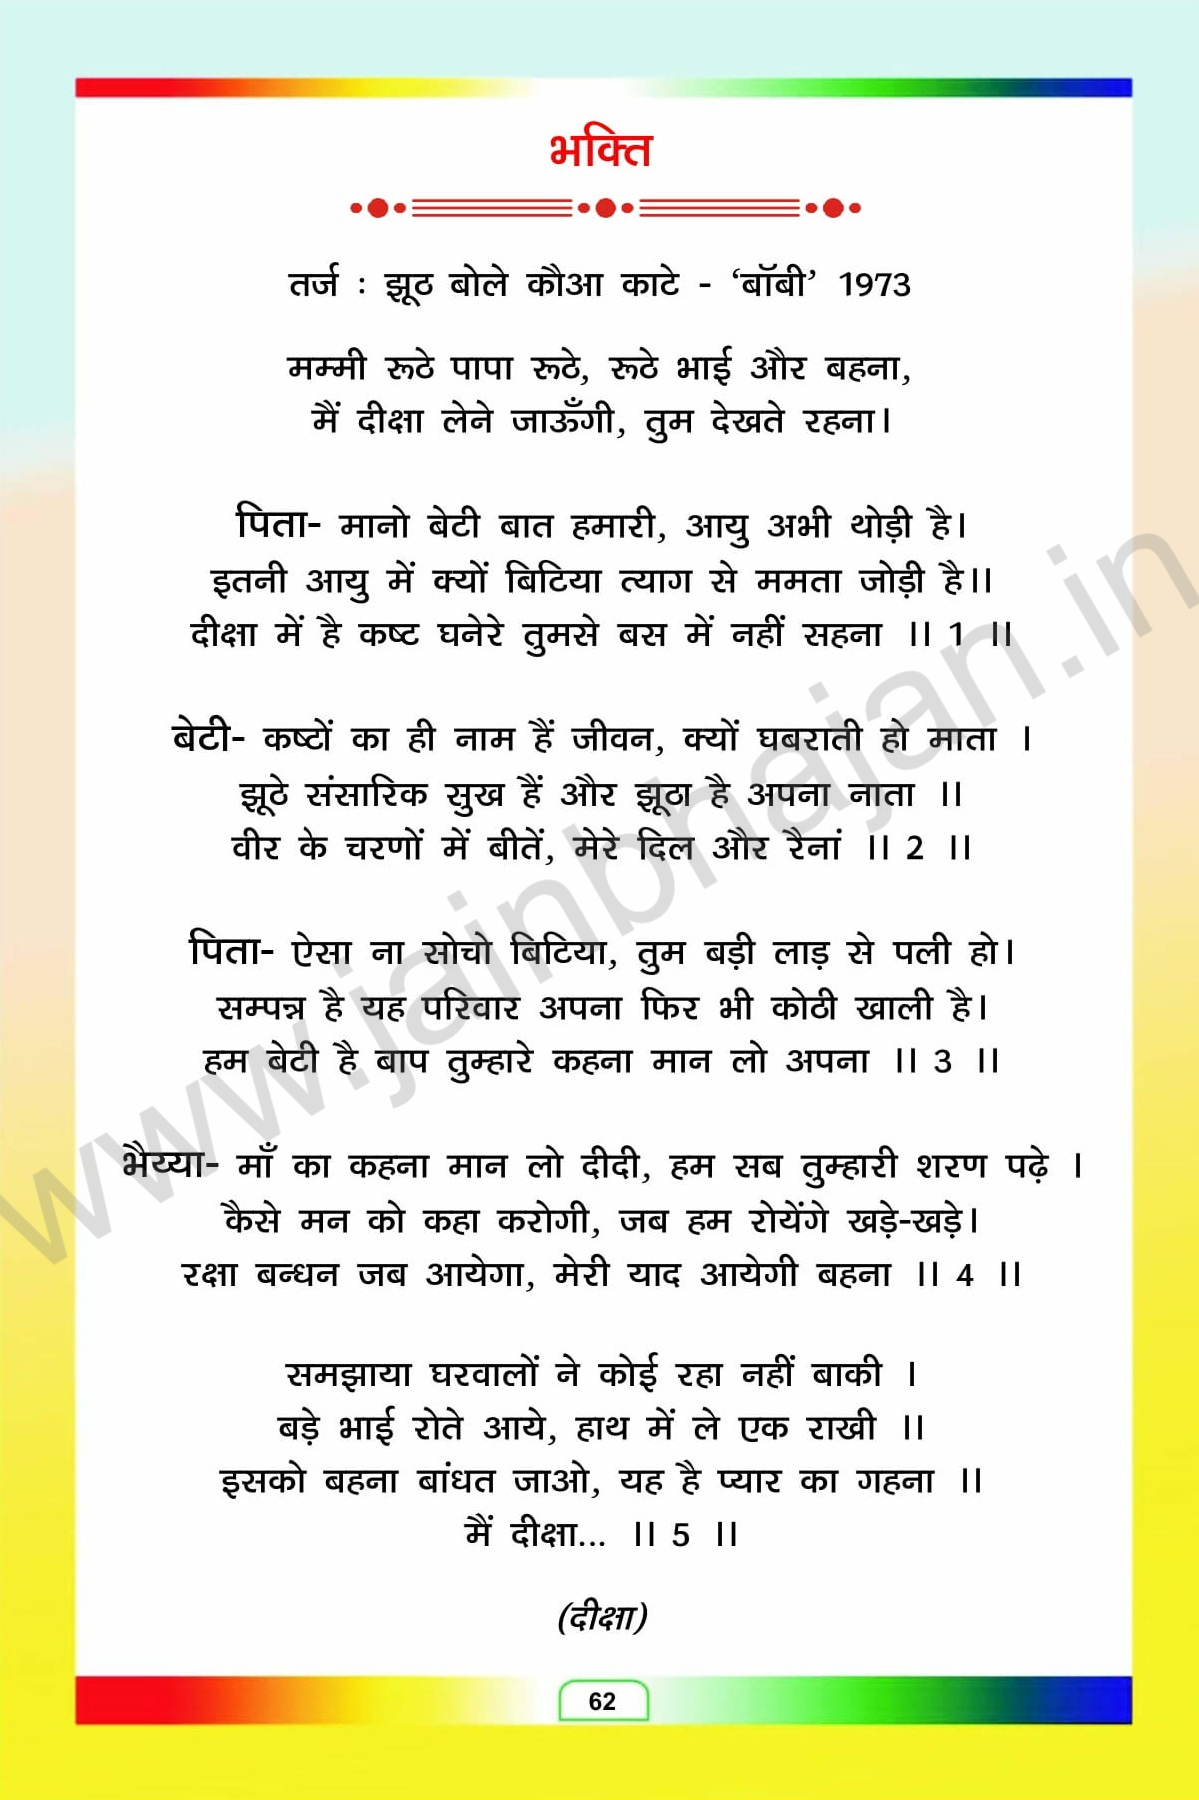 भक्ति
तर्ज : झूठ बोले कौआ काटे - ‘बॉबी’ 1973
मम्मी रूठे पापा रूठे, रूठे भाई और बहना,
मैं दीक्षा लेने जाऊँगी, तुम देखते रहना।
पिता- मानो बेटी बात हमारी, आयु अभी थोड़ी है।
इतनी आयु में क्यों बिटिया त्याग से ममता जोड़ी है।।
दीक्षा में है कष्ट घनेरे तुमसे बस में नहीं सहना ।। 1 ।।
बेटी- कष्टों का ही नाम हैं जीवन, क्यों घबराती हो माता ।
झूठे संसारिक सुख हैं और झूठा है अपना नाता ।।
वीर के चरणों में बीतें, मेरे दिल और रैनां ।। 2 ।।
पिता- ऐसा ना सोचो बिटिया, तुम बड़ी लाड़ से पली हो।
सम्पन्न है यह परिवार अपना फिर भी कोठी खाली है।
हम बेटी है बाप तुम्हारे कहना मान लो अपना ।। 3 ।।
भैय्या- माँ का कहना मान लो दीदी, हम सब तुम्हारी शरण पढ़े ।
कैसे मन को कहा करोगी, जब हम रोयेंगे खड़े-खड़े।
रक्षा बन्धन जब आयेगा, मेरी याद आयेगी बहना ।। 4 ।।
समझाया घरवालों ने कोई रहा नहीं बाकी ।
बड़े भाई रोते आये, हाथ में ले एक राखी ।।
इसको बहना बांधत जाओ, यह है प्यार का गहना ।।
मैं दीक्षा... ।। 5 ।।
(दीक्षा)
62
www.jainbhajan.in